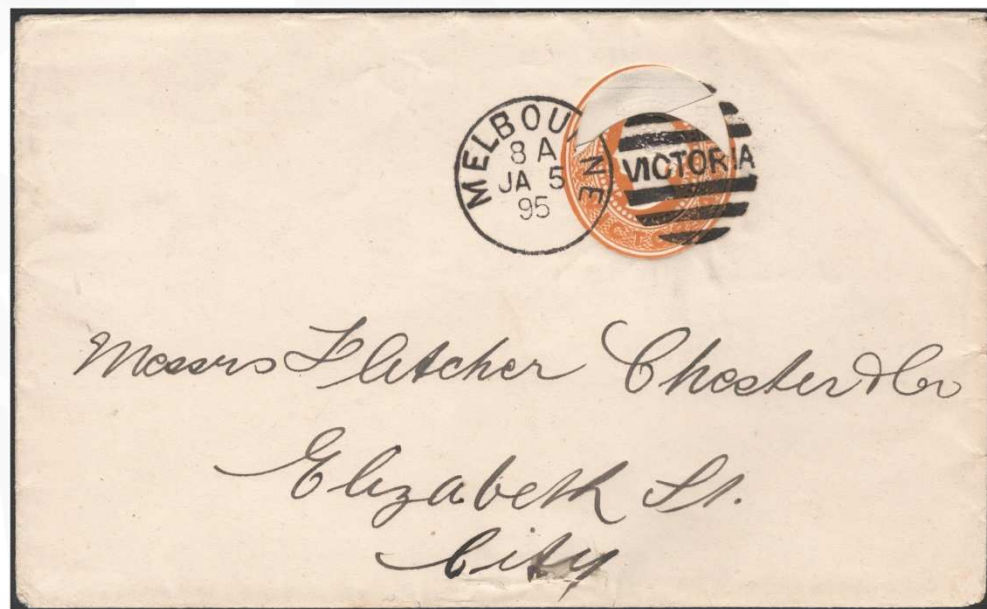 MELBOURNE
8 A
JA 5
95
VICTORIA
Messrs Fletcher Chester & Co
Elizabeth St.
City